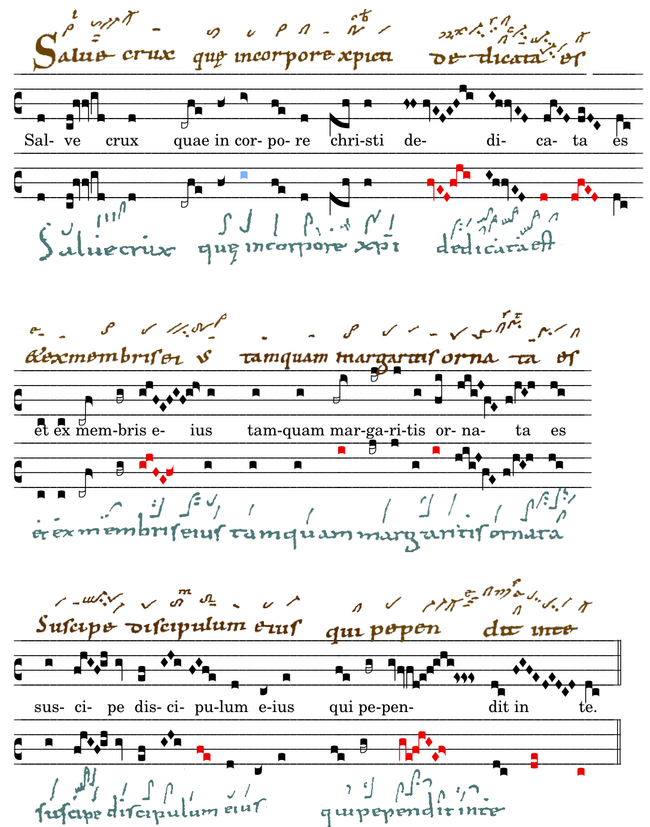 Salue crux quę incorpore xpicti de dicata es
Sal- ve crux quae in cor- po- re chri-sti de- di- ca- ta es
Saluecrux quę incorpore xpi dedicata est
et exmembris ei us tamquam margaritis orna ta es
et ex mem-bris e- ius tam-quam mar-ga-ri-tis or- na- ta es
et ex membris eius tamquam margaritis ornata
Suscipe discipulum eius qui pepen dit inte
sus- ci- pe dis- ci- pu-lum e-ius qui pe-pen- dit in te.
suscipe discipulum eius quipependit inte